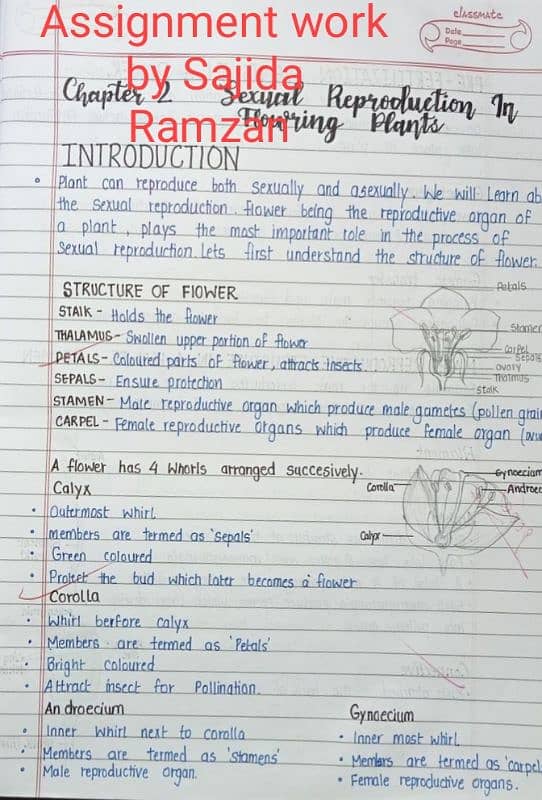 Assignment work
by Sajida
Ramzan
classmate
Date
Page
Chapter 2 Sexual Reproduction In
Flowring Plants
INTRODUCTION
• Plant can reproduce both sexually and asexually. We will Learn ab
the sexual reproduction. flower being the reproductive organ of
a plant, plays the most important role in the process of
Sexual reproduction. Lets first understand the structure of flower.
STRUCTURE OF FlOWER
STAlK - Holds the flower
THALAMUS - Swollen upper portion of flower
PETALS - Coloured parts of flower, attracts insects
SEPALS - Ensure protection
STAMEN - Male reproductive organ which produce male gametes (pollen grai
CARPEL - Female reproductive organs which produce female organ (ovu
Petals
Stamen
Carpel
Sepals
ovary
Thalmus
Stalk
A flower has 4 whorls arranged succesively.
Calyx
• Outermost whirl
• members are termed as 'sepals'
• Green coloured
• Protect the bud which later becomes a flower
Gynoecium
Androec
Corolla
Calyx
Corolla
• Whirl berfore calyx
• Members are termed as 'Petals'
• Bright coloured
• Attract insect for Pollination.
Androecium
• Inner whirl next to corolla
• Members are termed as 'stamens'
• Male reproductive organ.
Gynaecium
• Inner most whirl
• Members are termed as 'carpel
• Female reproductive organs.